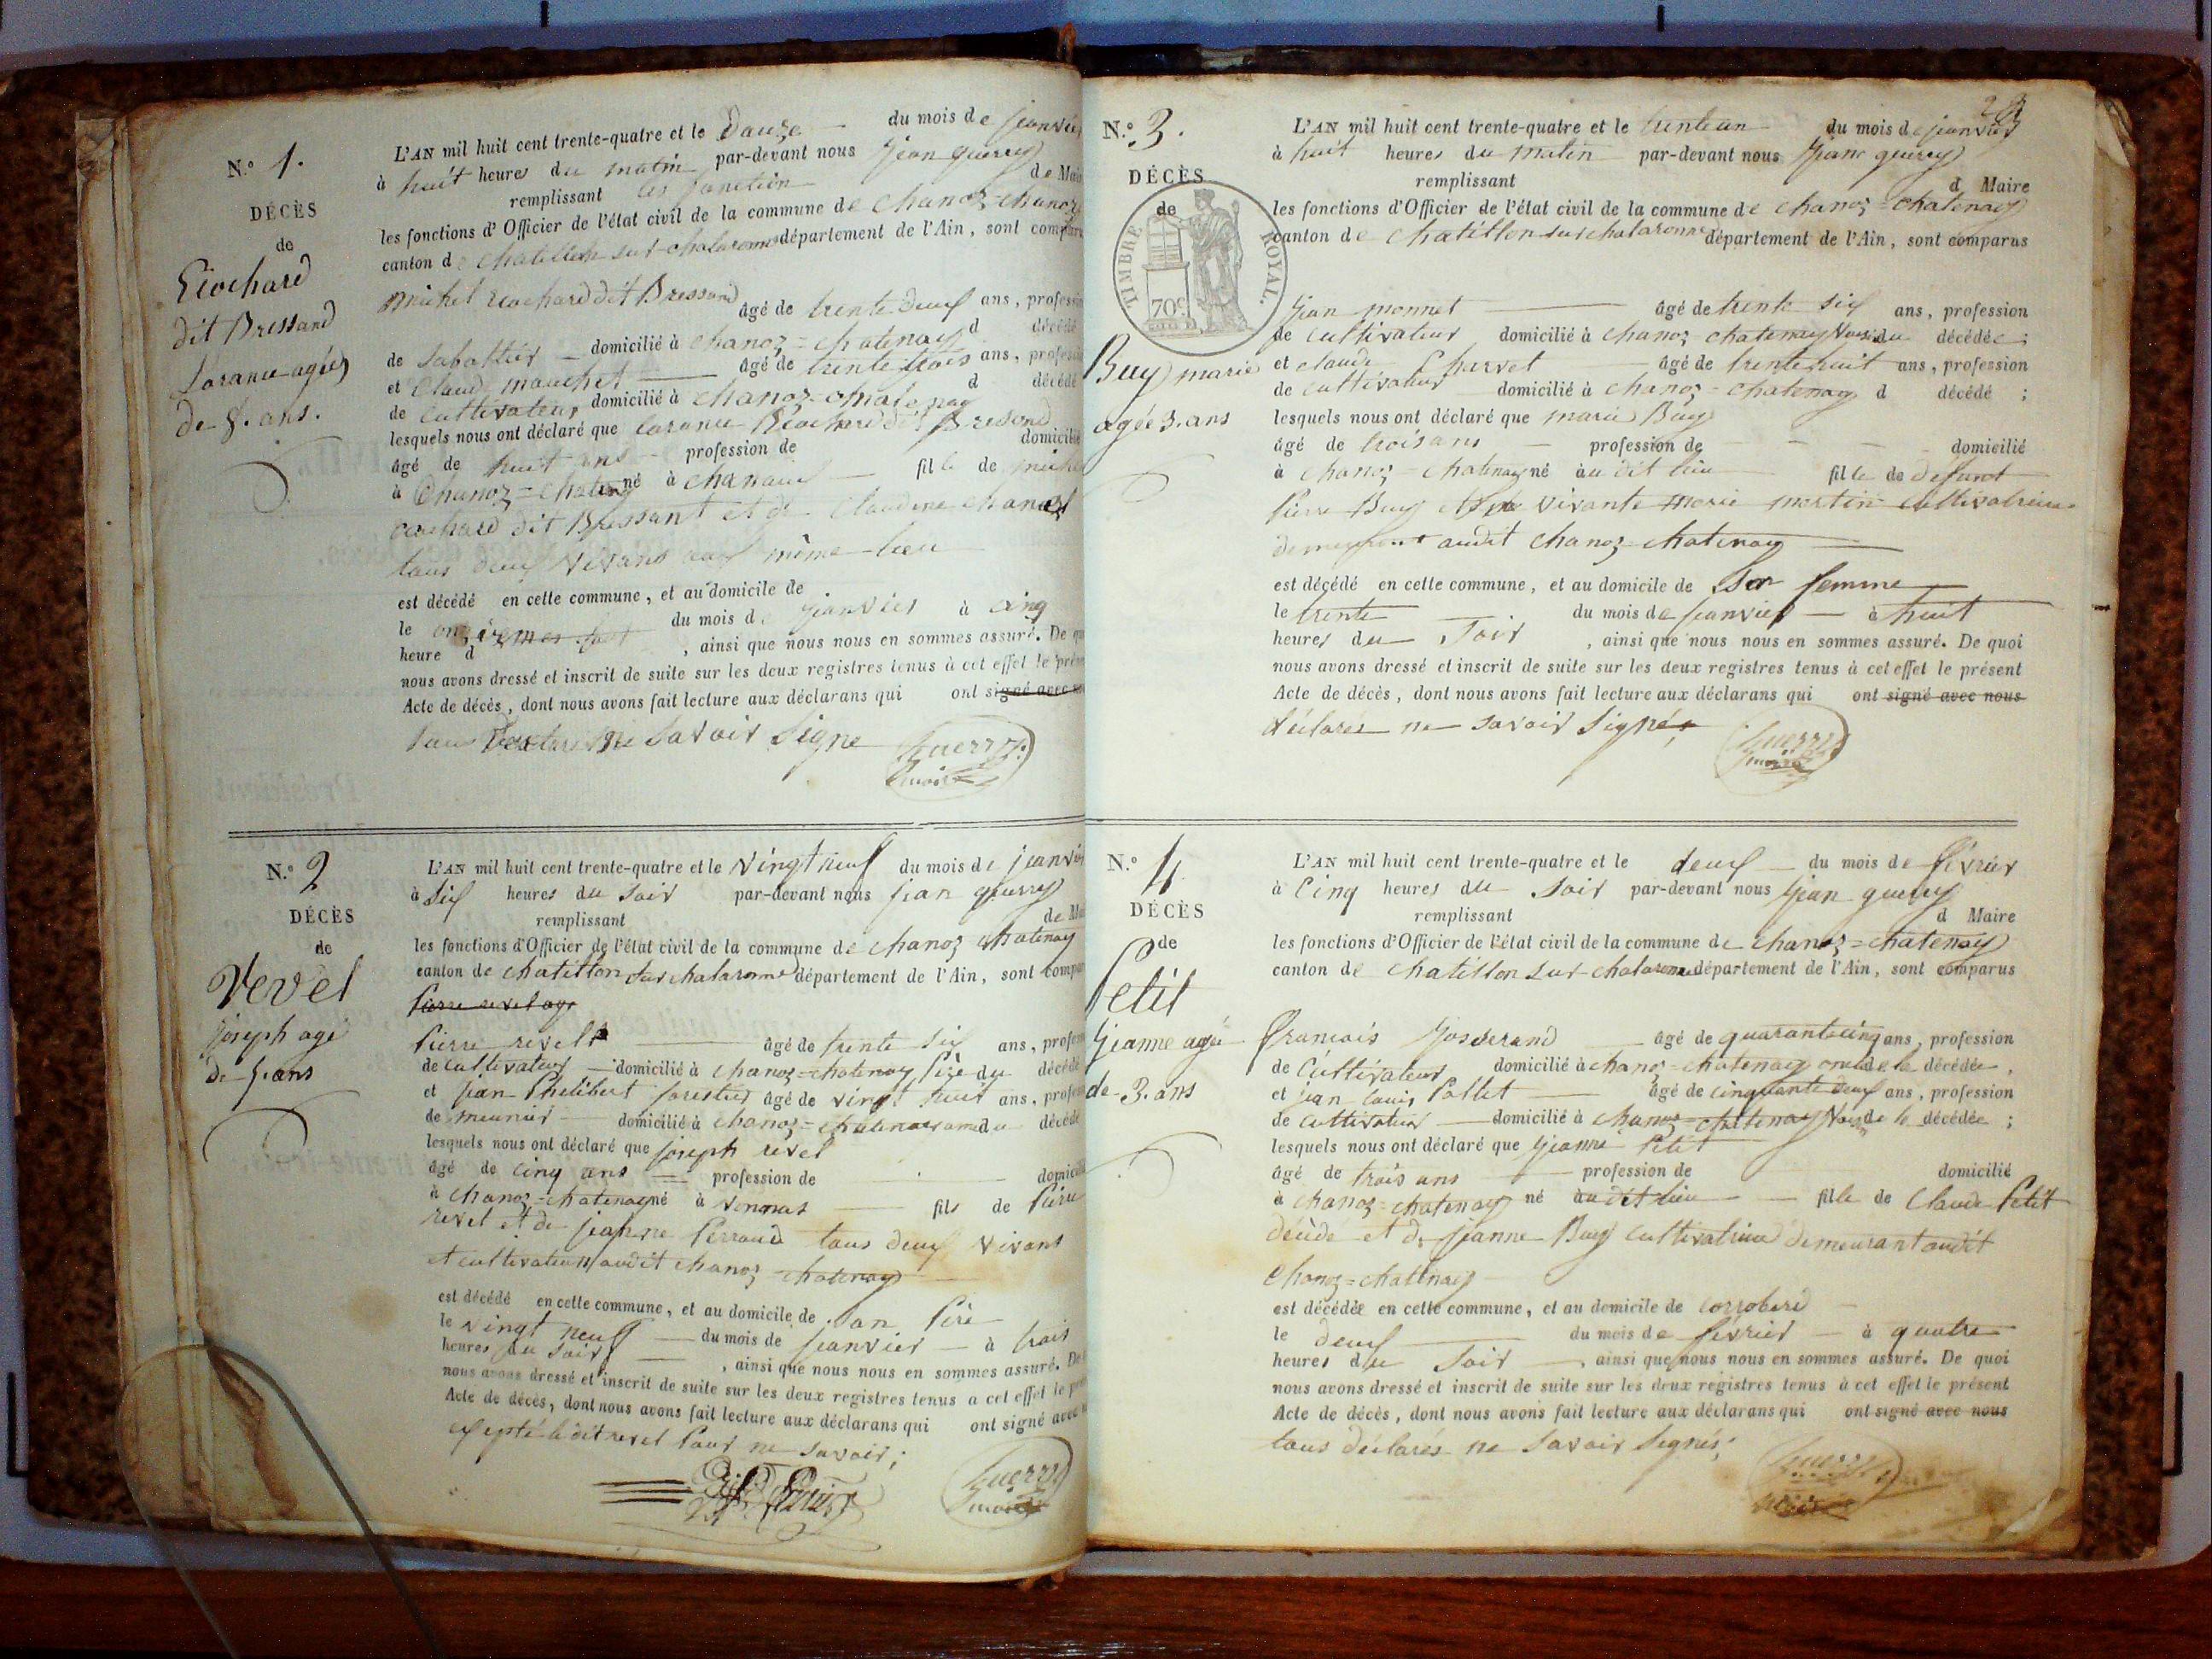 N.º 1.
DÉCÈS
de
dit Bressand
agée
de 8. ans.
L'AN mil huit cent trente-quatre et le Douze du mois de janvier
à huit heures du matin par-devant nous jean guerry
remplissant les fonction de Mai
les fonctions d'Officier de l'état civil de la commune de chanoz=chanoz
canton de chatillon sur chalaronne département de l'Ain, sont compar
michel dit Bressand âgé de trente deux ans, profession
de domicilié à chanoz=chatenay d décédé
et Claud mouchet âgé de trente trois ans, profession
de cultivateur domicilié à chanoz=chatenay d décédé
lesquels nous ont déclaré que dit Bresand
âgé de huit ans profession de domicilié
à chanoz=chatenay né à fille de michel
dit Bressant et de Claudine
tous deux vivans aux même lieu
est décédé en cette commune, et au domicile de
le du mois de janvier à cinq
heure d , ainsi que nous nous en sommes assuré. De qu
nous avons dressé et inscrit de suite sur les deux registres tenus à cet effet le prés
Acte de décès, dont nous avons fait lecture aux déclarans qui ont signé avec n
savoir signe
Guerry
maire
N.º 2
DÉCÈS
de
Revel
joseph agé
de 5. ans
L'AN mil huit cent trente-quatre et le vingt neuf du mois de janvier
à six heures du soir par-devant nous jean guerry
remplissant de Mai
les fonctions d'Officier de l'état civil de la commune de chanoz chatenay
canton de chatillon sur chalaronne département de l'Ain, sont compar
Pierre revel age
Pierre revel âgé de trente six ans, profess
de cultivateur domicilié à chanoz=chatenay Père du décédé
et jean Philibert forestier âgé de vingt huit ans, profess
de meunier domicilié à chanoz=chatenay ami du décédé
lesquels nous ont déclaré que joseph revel
âgé de cinq ans profession de domicilié
à chanoz=chatenay né à vonnas fils de Pierre
revel et de jeanne Perraud tous deux vivant
et cultivateurs audit chanoz chatenay
est décédé en cette commune, et au domicile de son Père
le vingt neuf du mois de janvier à trois
heures du soir , ainsi que nous nous en sommes assuré. De
nous avons dressé et inscrit de suite sur les deux registres tenus a cet effet le pré
Acte de décès, dont nous avons fait lecture aux déclarans qui ont signé avec n
excepté le dit revel Pour ne savoir;
Guerry
maire
N.º 3.
DÉCÈS
de
TIMBRE ROYAL.
70c
Buy marie
agée 3. ans
L'AN mil huit cent trente-quatre et le trente un du mois de janvier
à huit heures du matin par-devant nous jean guerry
remplissant d Maire
les fonctions d'Officier de l'état civil de la commune de chanoz=chatenay
canton de chatillon sur chalaronne département de l'Ain, sont comparus
jean monnet âgé de trente six ans, profession
de cultivateur domicilié à chanoz-chatenay voisin du décédée;
et claude Charvet âgé de trente huit ans, profession
de cultivateur domicilié à chanoz=chatenay d décédé ;
lesquels nous ont déclaré que marie Buy
âgé de trois ans profession de domicilié
à chanoz=chatenay né au dit lieu fille de defunt
Pierre Buy et de vivante marie martin cultivatrice
demeurant audit chanoz-chatenay
est décédé en cette commune, et au domicile de son femme
le trente du mois de janvier à huit
heures du soir , ainsi que nous nous en sommes assuré. De quoi
nous avons dressé et inscrit de suite sur les deux registres tenus à cet effet le présent
Acte de décès, dont nous avons fait lecture aux déclarans qui ont signé avec nous
déclarés ne savoir signé,
Guerry
maire
N.º 4
DÉCÈS
de
Petit
jeanne agée
de 3. ans
L'AN mil huit cent trente-quatre et le deux du mois de février
à cinq heures du soir par-devant nous jean guerry
remplissant d Maire
les fonctions d'Officier de l'état civil de la commune de chanoz=chatenay
canton de chatillon sur chalaronne département de l'Ain, sont comparus
francois josserand âgé de quarante cinq ans, profession
de cultivateur domicilié à chanoz-chatenay oncle de la décédée,
et jean louis Pollet âgé de cinquante deux ans, profession
de cultivateur domicilié à chanoz=chatenay voisin de la décédée ;
lesquels nous ont déclaré que jeanne Petit
âgé de trois ans profession de domicilié
à chanoz=chatenay né au dit lieu fille de Claude Petit
décédé et de jeanne Buy cultivatrice demeurant audit
chanoz=chatenay
est décédée en cette commune, et au domicile de
le deux du mois de février à quatre
heures du soir , ainsi que nous nous en sommes assuré. De quoi
nous avons dressé et inscrit de suite sur les deux registres tenus à cet effet le présent
Acte de décès, dont nous avons fait lecture aux déclarans qui ont signé avec nous
tous déclarés ne savoir signés;
Guerry
maire